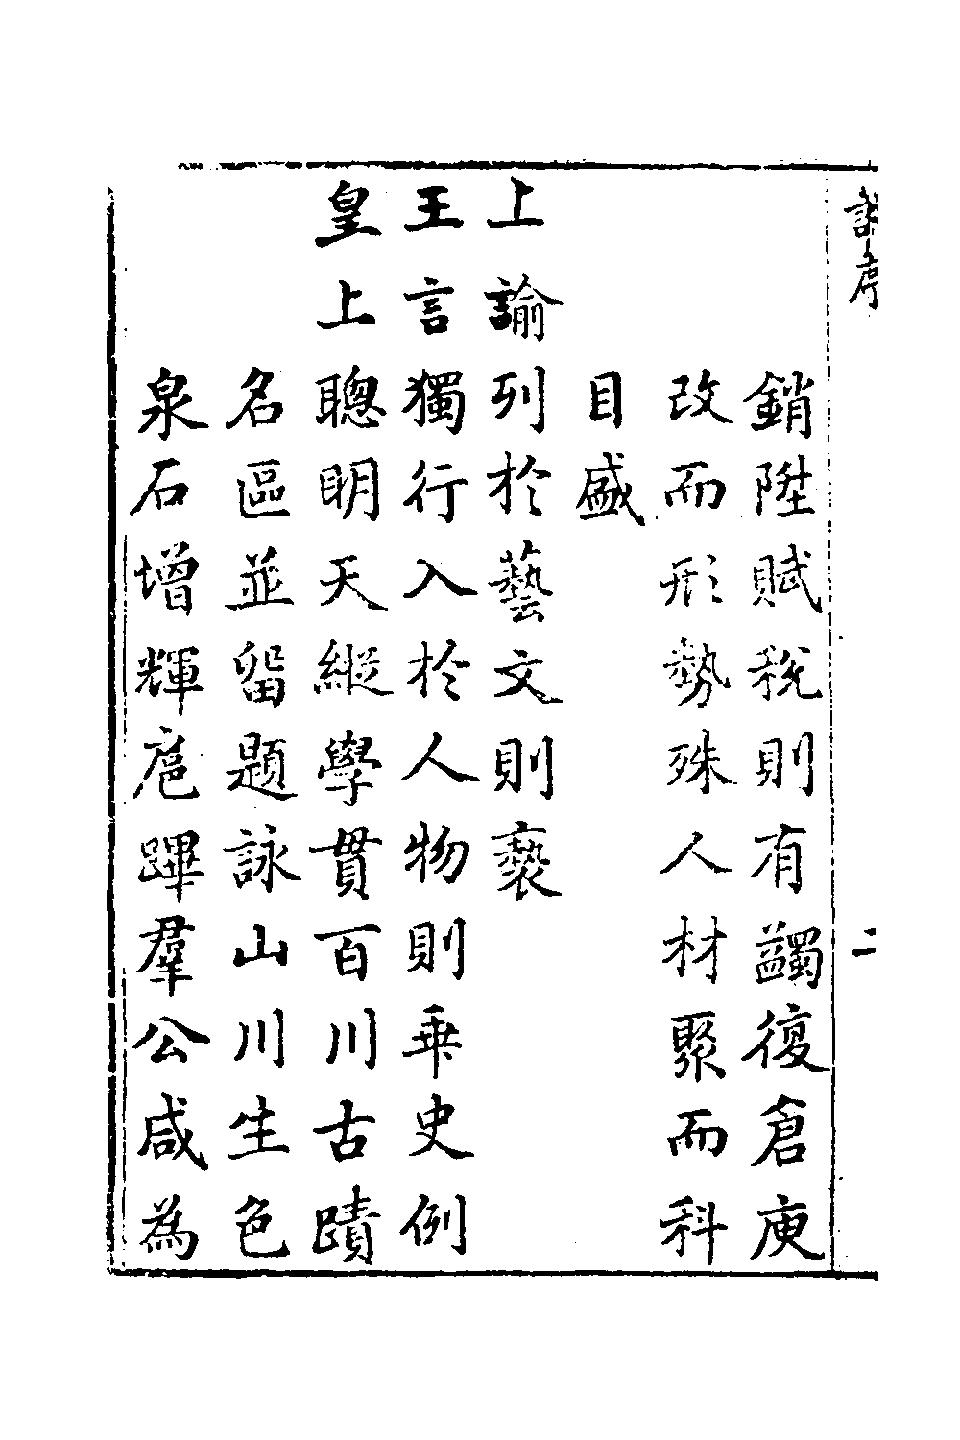 銷陞賦稅則有蠲復倉庾
改而形勢殊人材聚而科
目盛
上諭列於藝文則褻
王言獨行入於人物則乖史例
皇上聰明天縱學貫百川古蹟
名區並留題詠山川生色
泉石增輝扈蹕羣公咸為
序
二